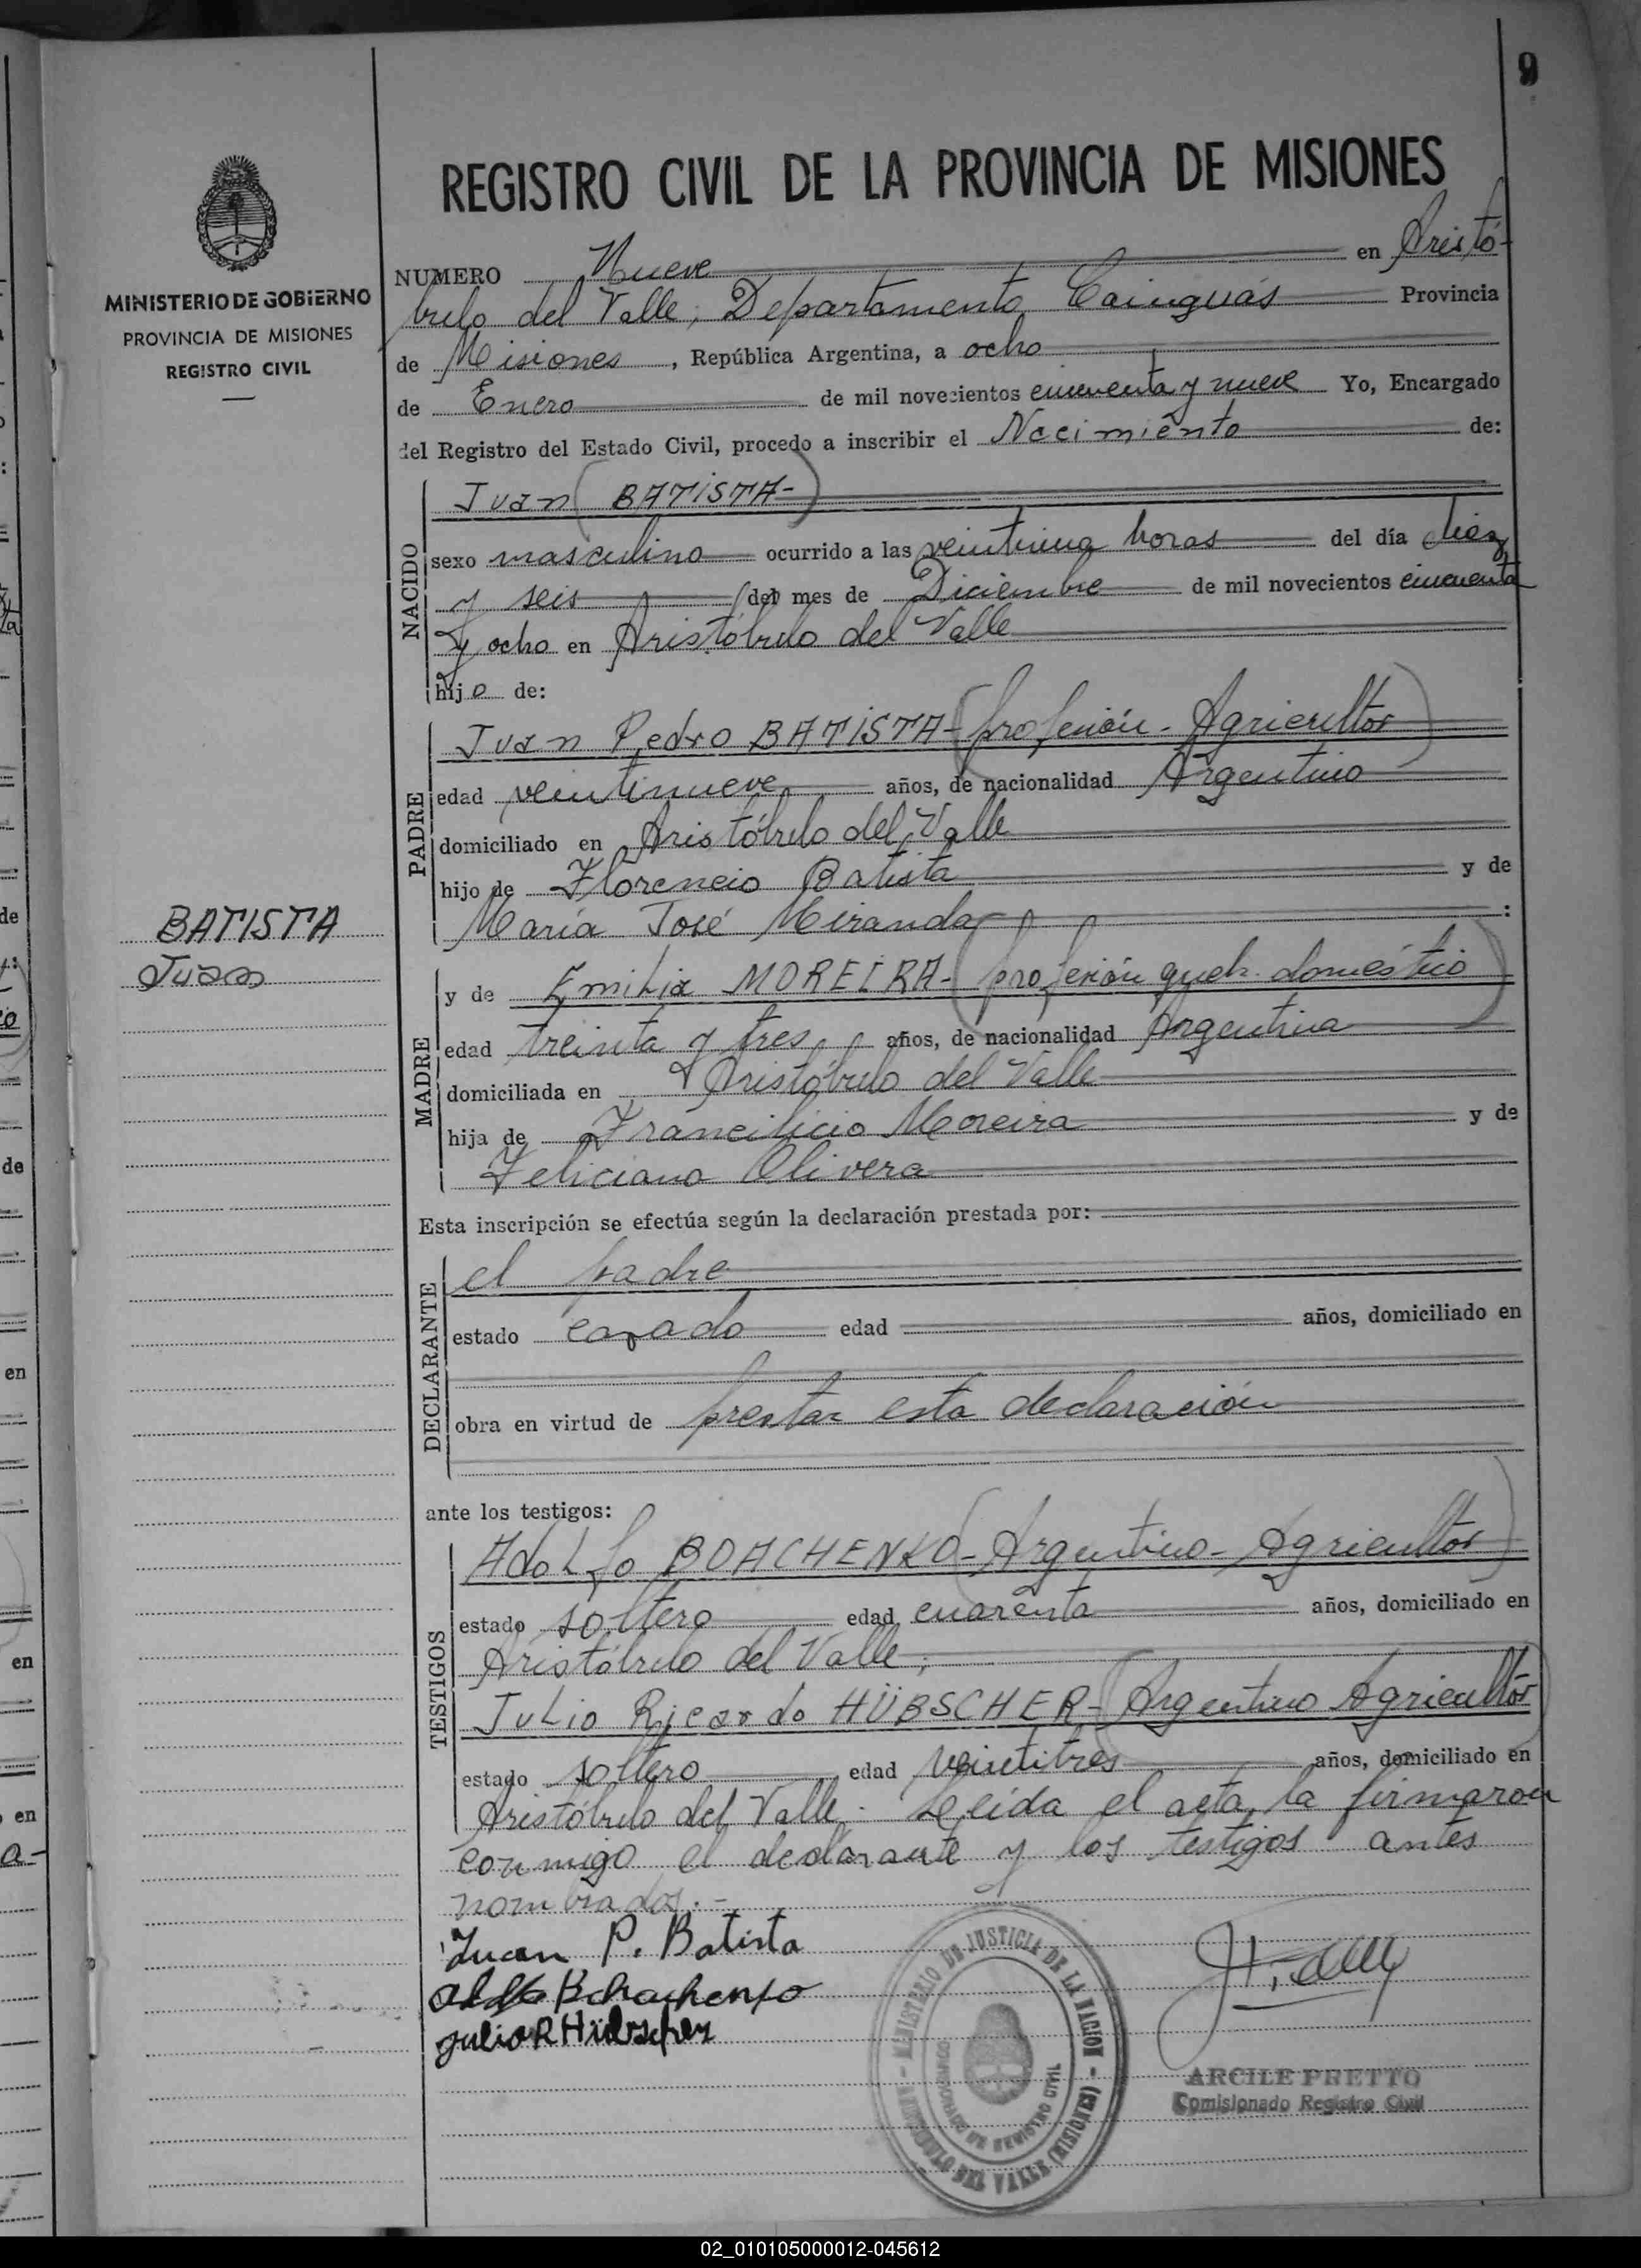 9
REGISTRO CIVIL DE LA PROVINCIA DE MISIONES
MINISTERIO DE GOBIERNO
PROVINCIA DE MISIONES
REGISTRO CIVIL
BATISTA
Juan
NUMERO Nueve en Aristó-
bulo del Valle, Departamento Cainguás Provincia
de Misiones, República Argentina, a ocho
de Enero de mil novecientos cincuenta y nueve Yo, Encargado
del Registro del Estado Civil, procedo a inscribir el Nacimiento de:
NACIDO
Juan (BATISTA-)
sexo masculino ocurrido a las veintiuna horas del día diez
y seis (del mes de Diciembre de mil novecientos cincuenta
y ocho en Aristóbulo del Valle
hijo de:
PADRE
Juan Pedro BATISTA- (profesión - Agricultor)
edad veintinueve años, de nacionalidad Argentino
domiciliado en Aristóbulo del Valle
hijo de Florencio Batista y de
María José Miranda :
MADRE
y de Emilia MOREIRA- (profesión queh. domésticø)
edad treinta y tres años, de nacionalidad Argentina
domiciliada en Aristóbulo del Valle
hija de Francilicio Moreira y de
Feliciana Olivera
Esta inscripción se efectúa según la declaración prestada por:
DECLARANTE
el padre
estado casado edad años, domiciliado en
obra en virtud de prestar esta declaración
ante los testigos:
TESTIGOS
Adolfo BOACHENKO (-Argentino- Agricultor)
estado soltero edad cuarenta años, domiciliado en
Aristóbulo del Valle;
Julio Ricardo HÜBSCHER- (Argentino Agricultor)
estado soltero edad veintitres años, domiciliado en
Aristóbulo del Valle.- Leída el acta, la firmaron
conmigo el declarante y los testigos antes
nombrados.-
Juan P. Batista
Julio R Hübscher
MINISTERIO DE JUSTICIA DE LA NACION - ARISTOBULO DEL VALLE (MISIONES) -
COMISIONADO DE REGISTRO CIVIL
ARCILE PRETTO
Comisionado Registro Civil
02_010105000012-045612